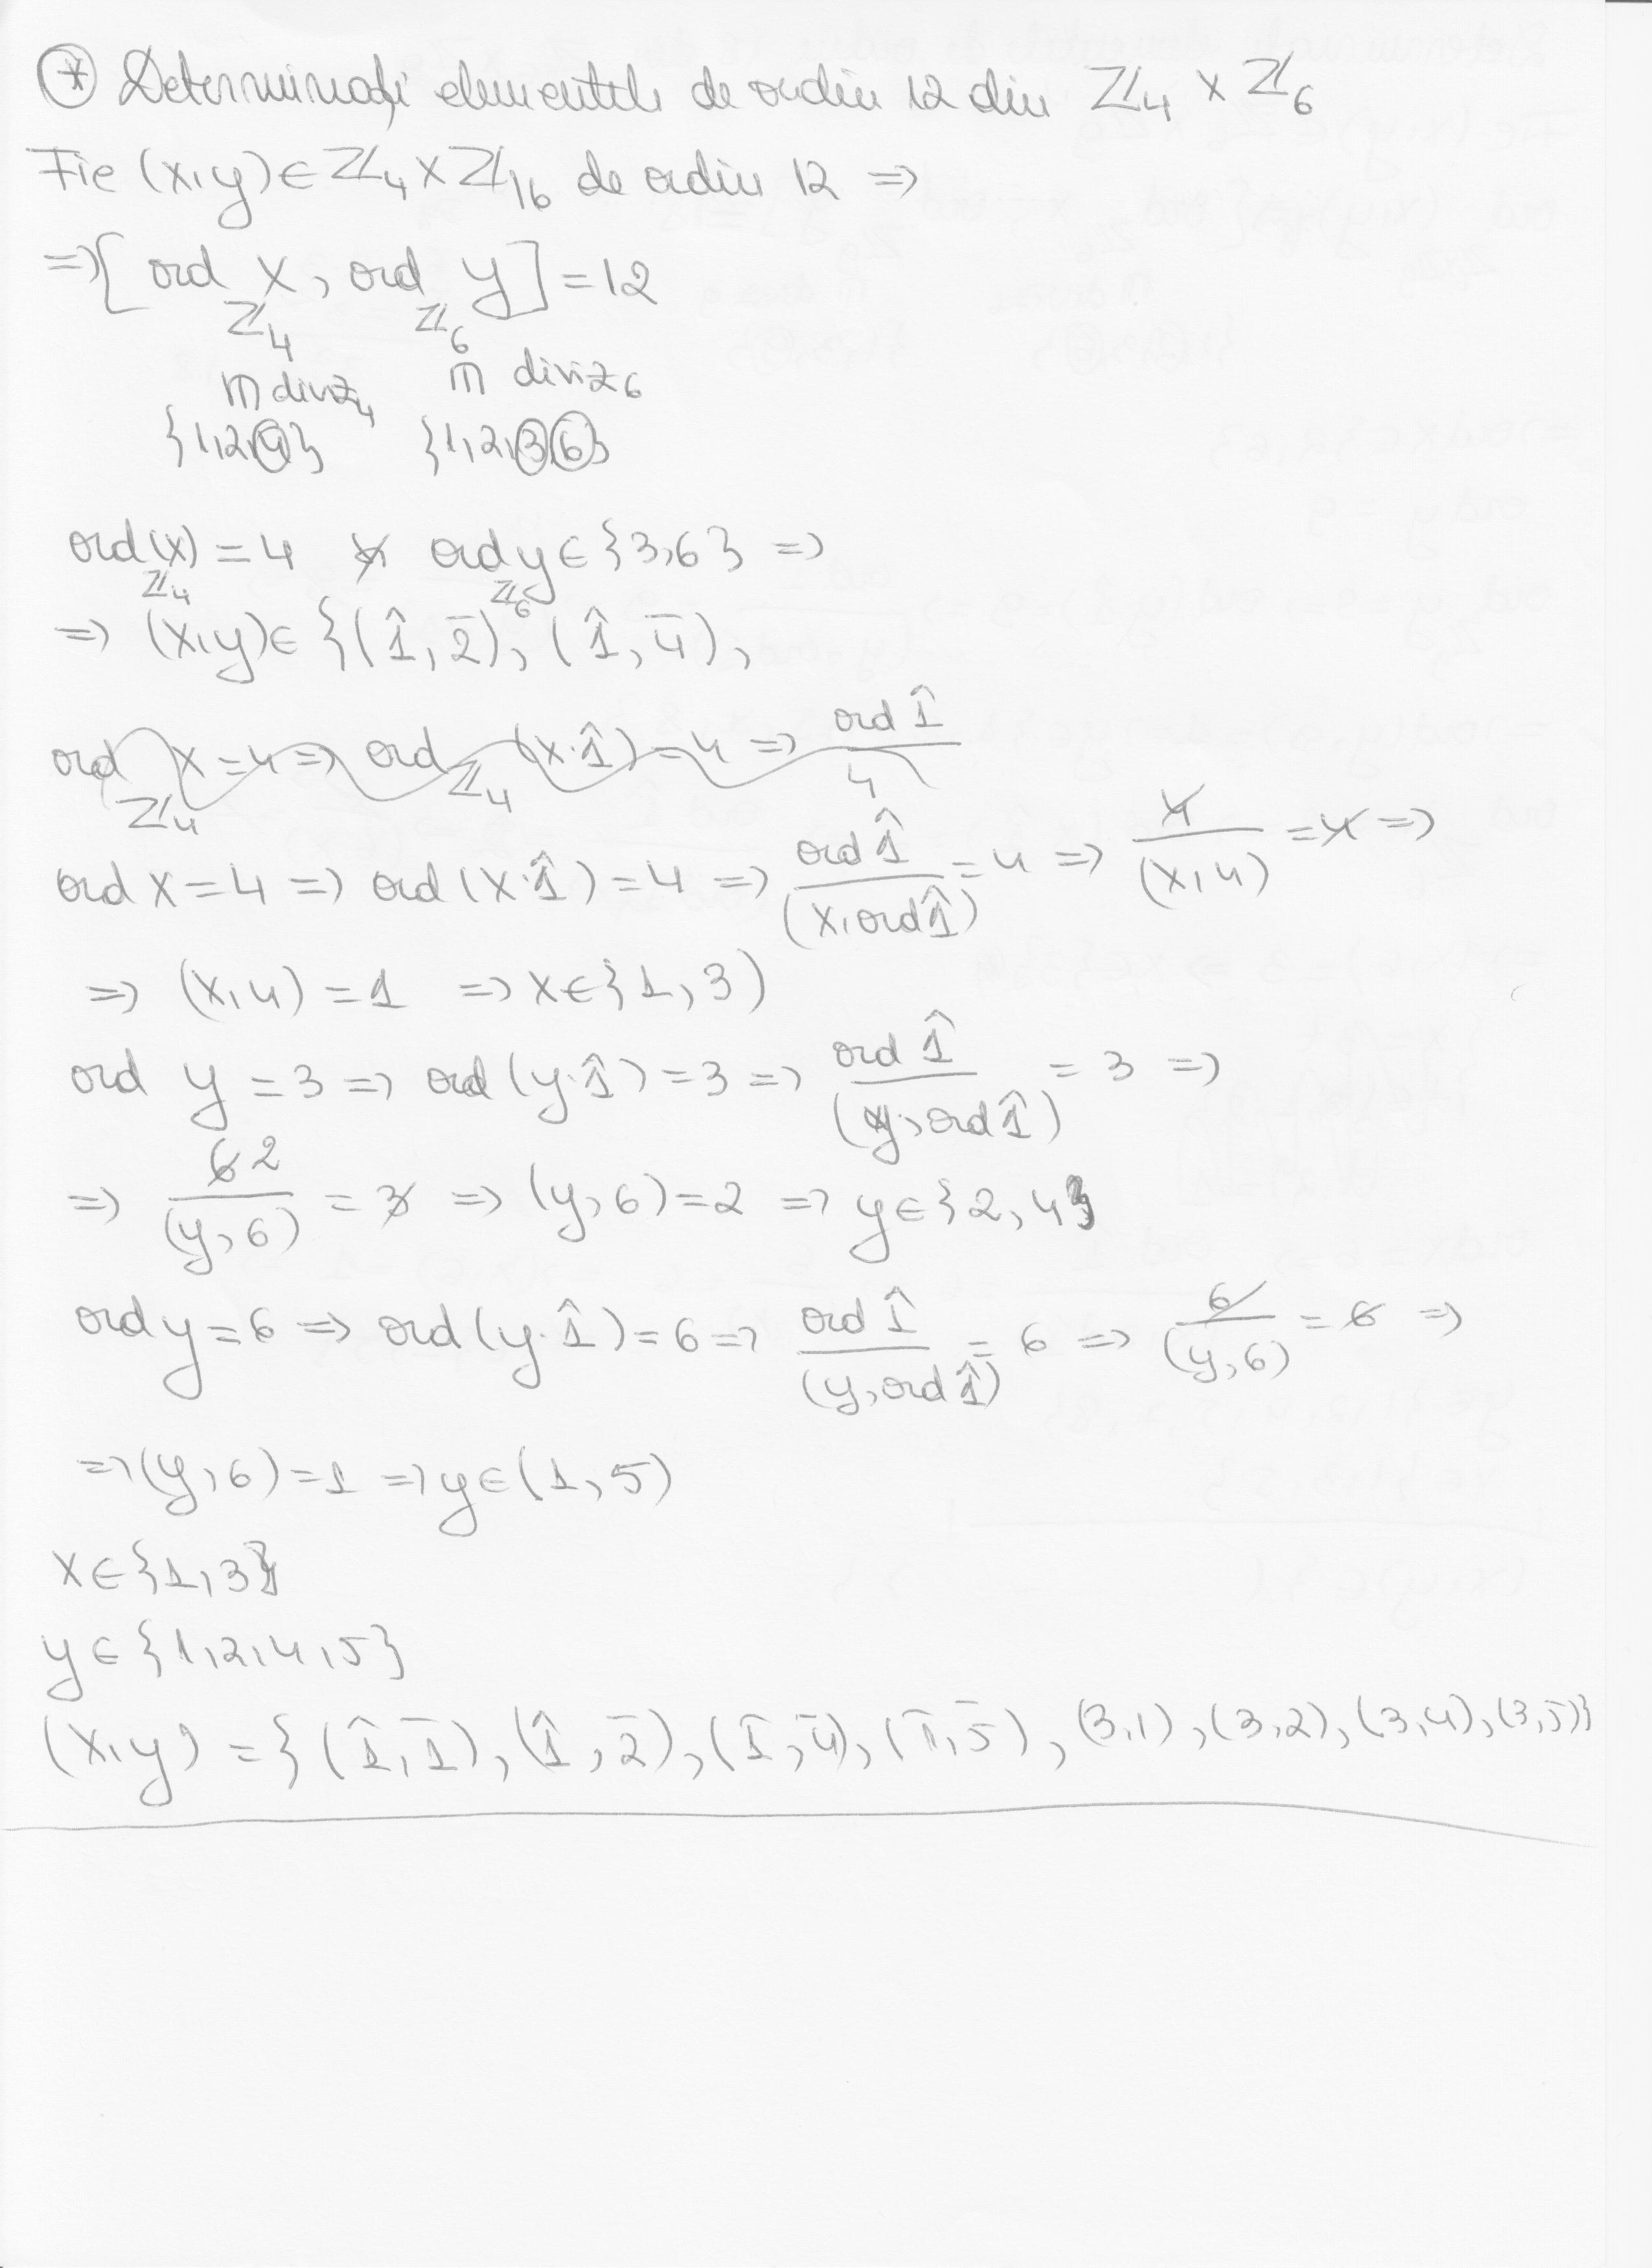 (*) Determinați elementele de ordin 12 din ℤ₄ × ℤ₆
Fie (x,y) ∈ ℤ₄ × ℤ₁₆ de ordin 12 =>
=> [ord x, ord y] = 12
ℤ₄ ℤ₆
∩ div ℤ₄ ∩ div ℤ₆
{1,2,4} {1,2,3,6}
ord(x) = 4 ord y ∈ {3,6} =>
ℤ₄ ℤ₆
=> (x,y) ∈ {(1̂, 2̄), (1̂, 4̄),
ord x = 4 => ord (x·1̂) = 4 => ord 1̂ / 4
ℤ₄ ℤ₄
ord x = 4 => ord (x·1̂) = 4 => ord 1̂ / (x, ord 1̂) = 4 => 4 / (x,4) = 4 =>
=> (x,4) = 1 => x ∈ {1, 3)
ord y = 3 => ord (y·1̂) = 3 => ord 1̂ / (y, ord 1̂) = 3 =>
=> 6 2 / (y,6) = 3 => (y,6) = 2 => y ∈ {2,4}
ord y = 6 => ord (y·1̂) = 6 => ord 1̂ / (y, ord 1̂) = 6 => 6 / (y,6) = 6 =>
=> (y,6) = 1 => y ∈ (1,5)
x ∈ {1,3}
y ∈ {1,2,4,5}
(x,y) = {(1̂, 1̄), (1̂, 2̄), (1̄, 4̄), (1̄, 5̄), (3,1), (3,2), (3,4), (3,5)}